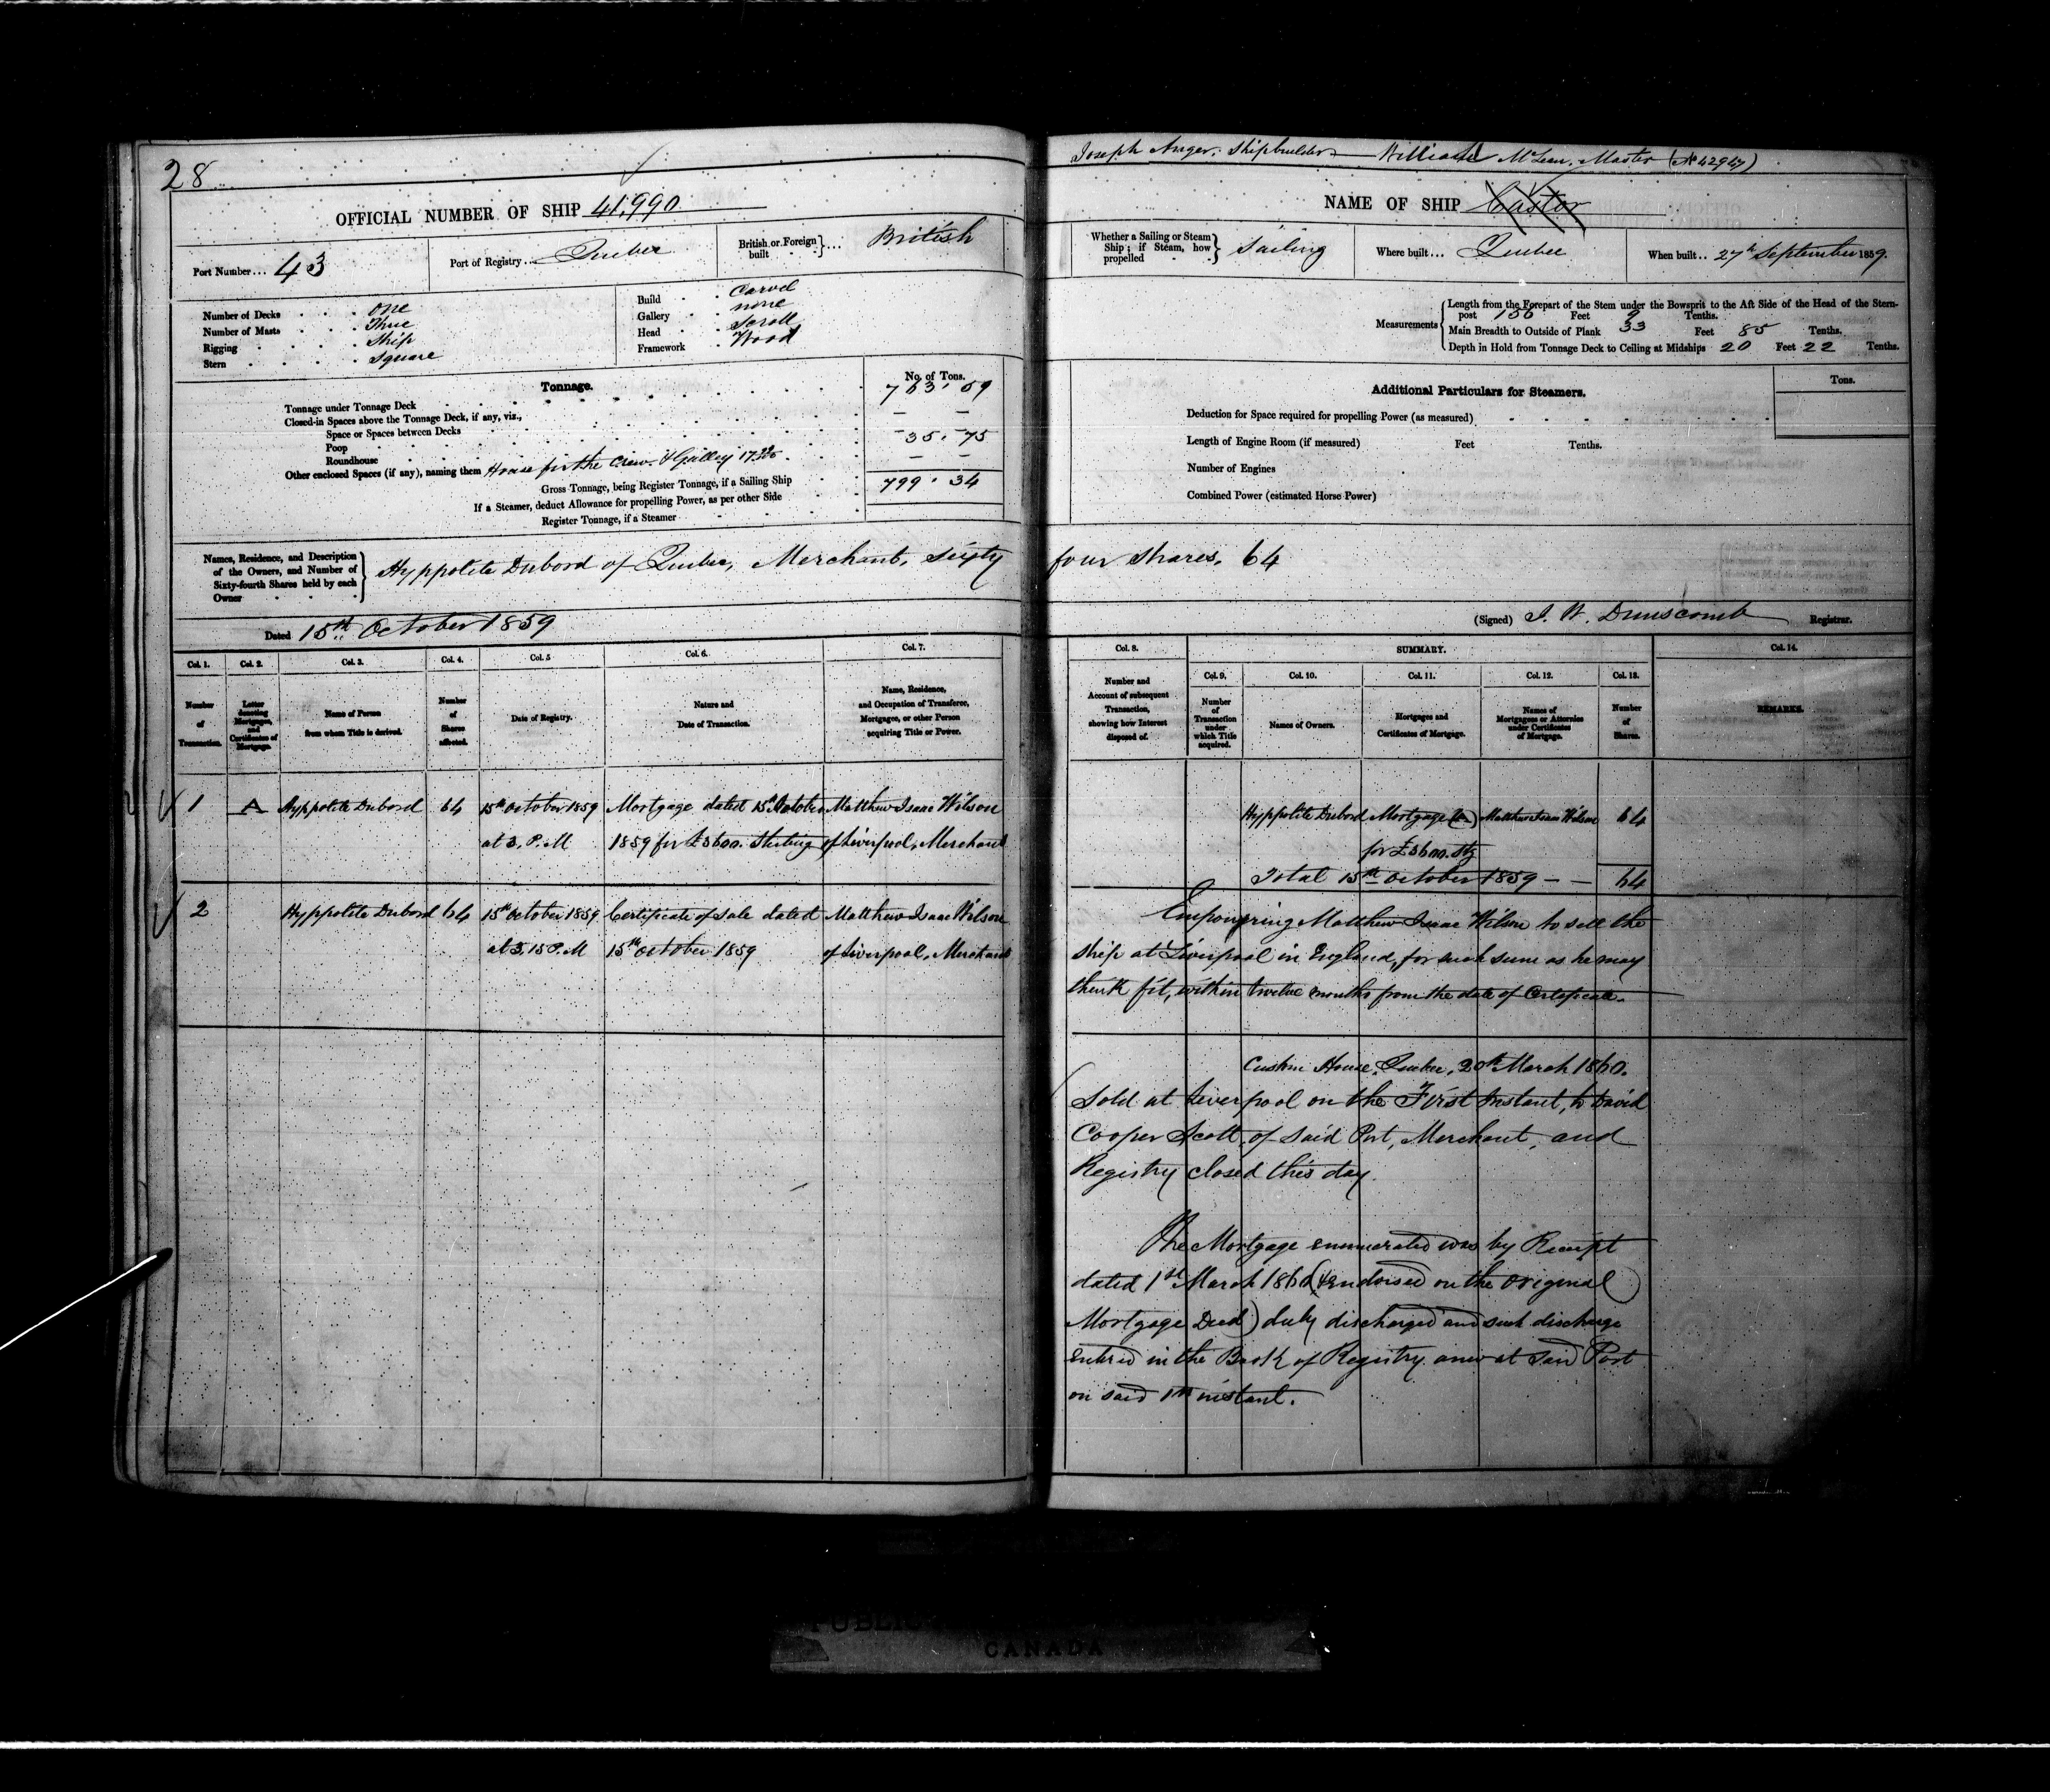 28
OFFICIAL NUMBER OF SHIP 41,990
Port Number... 43
Port of Registry... Quebec
British or Foreign built } ... British
Number of Decks . . . One
Number of Masts . . . Three
Rigging . . . Ship
Stern . . . Square
Build . . Carvel
Gallery . . none
Head . . Scroll
Framework . Wood
Tonnage.
No. of Tons.
Tonnage under Tonnage Deck 763.59
Closed-in Spaces above the Tonnage Deck, if any, viz.,
Space or Spaces between Decks
Poop 35.75
Roundhouse
Other enclosed Spaces (if any), naming them House for the Crew & Galley
Gross Tonnage, being Register Tonnage, if a Sailing Ship 799.34
If a Steamer, deduct Allowance for propelling Power, as per other Side
Register Tonnage, if a Steamer
Names, Residence, and Description of the Owners, and Number of Sixty-fourth Shares held by each Owner } Hyppolite Dubord of Quebec, Merchant, Sixty
Dated 15th October 1859
Col. 1. Col. 2. Col. 3. Col. 4. Col. 5 Col. 6. Col. 7.
Number of Transaction.
Letter denoting Mortgages, and Certificates of Mortgage.
Name of Person from whom Title is derived.
Number of Shares affected.
Date of Registry.
Nature and Date of Transaction.
Name, Residence, and Occupation of Transferee, Mortgagee, or other Person acquiring Title or Power.
1 A Hyppolite Dubord 64 15th October 1859 Mortgage dated 15th October Matthew Isaac Wilson
at 3, P.M 1859 for £3600. Sterling of Liverpool, Merchant
2 Hyppolite Dubord 64 15th October 1859 Certificate of Sale dated Matthew Isaac Wilson
at 3,15 P.M 15th October 1859 of Liverpool, Merchant
Joseph Anger, Shipbuilder William McLean, Master (No 42947)
NAME OF SHIP Castor
Whether a Sailing or Steam Ship; if Steam, how propelled } Sailing
Where built... Quebec
When built.. 27th September 1859.
Measurements
Length from the Forepart of the Stem under the Bowsprit to the Aft Side of the Head of the Stern-
post 156 Feet 9 Tenths.
Main Breadth to Outside of Plank 33 Feet 85 Tenths.
Depth in Hold from Tonnage Deck to Ceiling at Midships 20 Feet 22 Tenths.
Additional Particulars for Steamers.
Tons.
Deduction for Space required for propelling Power (as measured)
Length of Engine Room (if measured) Feet Tenths.
Number of Engines
Combined Power (estimated Horse Power)
four Shares. 64
(Signed) J. W. Dunscomb Registrar.
Col. 8. SUMMARY. Col. 14.
Col. 9. Col. 10. Col. 11. Col. 12. Col. 13.
Number and Account of subsequent Transaction, showing how Interest disposed of.
Number of Transaction under which Title acquired.
Names of Owners.
Mortgages and Certificates of Mortgage.
Names of Mortgagees or Attornies under Certificates of Mortgage.
Number of Shares.
REMARKS.
Hyppolite Dubord Mortgage (A) Matthew Isaac Wilson 64
for £3600. Stg
Total 15th October 1859 — — 64
Empowering Matthew Isaac Wilson to sell the
Ship at Liverpool in England, for such sum as he may
think fit, within twelve months from the date of Certificate.
Custom House, Quebec, 20th March 1860.
Sold at Liverpool on the First Instant, to David
Cooper Scott, of said Port, Merchant, and
Registry closed this day.
The Mortgage enumerated was by Receipt
dated 1st March 1860 (Endorsed on the original
Mortgage Deed) duly discharged and such discharge
entered in the Book of Registry anew at said Port
on said 1st instant.
PUBLIC
CANADA